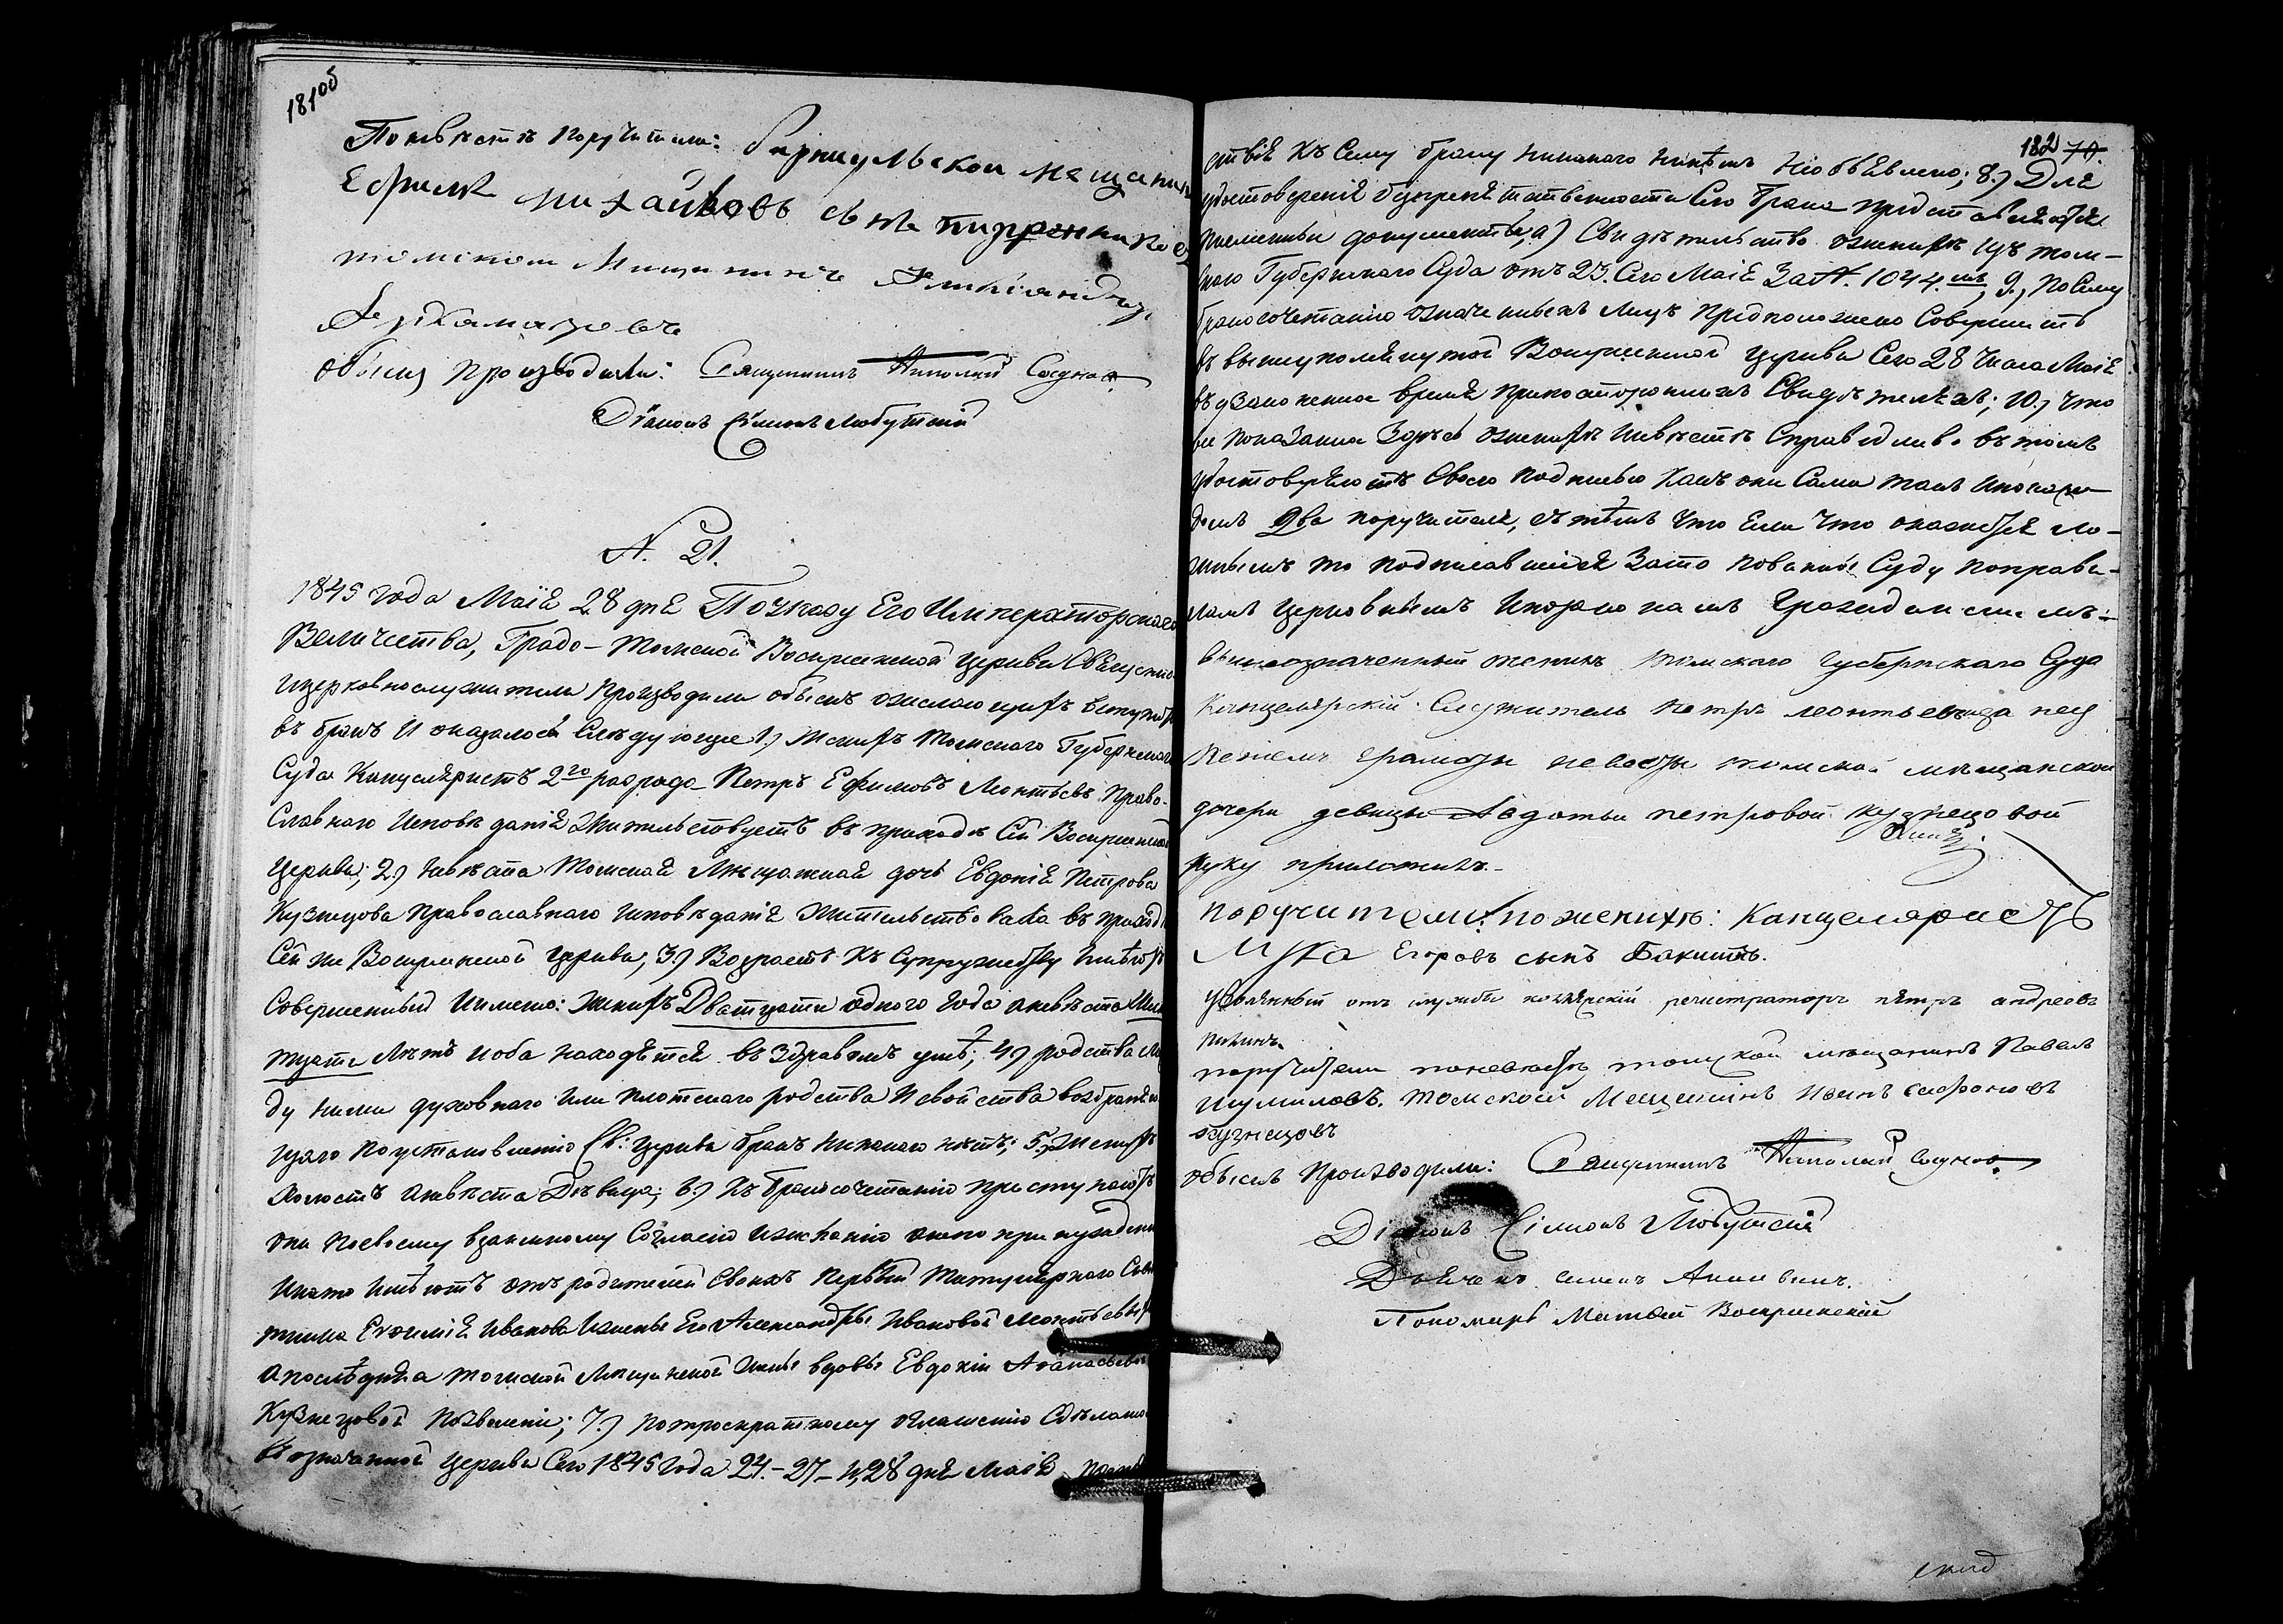 181об
По невѣстѣ поручители: барнаульской мещанинъ
Ефимъ Михайловъ сынъ
томской Мещининъ

обыскъ производили: Священникъ Николай
Діаконъ Сімеонъ Любутскій
N. 21.
1845 года Маія 28 дня По указу Его Императорскаго
Величества, Градо-Томской Воскресенской церкви Священно
ицерковнослужители производили обыскъ ожелающихъ вступить
въ бракъ И оказалось Слѣдующее 1.) Женихъ Томскаго Губернскаго
Суда Канцеляристъ 2го разряда Петръ Ефимовъ Леонтьевъ Право-
Славнаго Исповѣданія Жительствуетъ въ приходѣ Сей Воскресенской
Церкви; 2.) Невѣста Томская Мѣщанская дочь Евдокія Петрова
Кузнецова Православнаго Исповѣданія Жительствовала въ приходѣ
Сей же Воскресенской церкви, 3.) Возрастъ Къ Супружеству Имѣютъ
Совершенный Именно: Женихъ Дватцати одного года аневѣста Шес
тцати Лѣтъ Иоба находятся въ Здравомъ умѣ; 4.) родства Меж
ду ними духовнаго Или плотскаго родства И свойства возбраняю
щаго По установленію Св: Церкви бракъ Никакого нѣтъ; 5.) Женихъ
Холостъ аневѣста Дѣвица; 6.) Къ бракосочетанію приступаютъ
они посвоему взаимному Согласію Ижеланію анепопринужденію
Инато Имѣютъ отъ родителей Своихъ Первый Титулярнаго Совѣ
тника Евѳимія Иванова Ижены Его Александры Ивановой Леонтьевыхъ
Апослѣдняя Томской Мѣщанской Жены вдовы Евдокіи Аѳанасьевой
Кузнецовой Позволеніи; 7.) Потроекратному оглашенію Сдѣланному
въ означенной Церкви Сего 1845 года 24.- 27.- и, 28 дня Маія Препят
182 70
ствія Къ Сему браку никакого никѣмъ Необъявлено; 8.) Для
удостовѣренія безпрепятственности Сего брака представляются
писменныи документы, а) Свидѣтельство оженихѣ изъ Том-
скаго Губернскаго Суда отъ 23. Сего Маія За N. 1044.мъ, 9., По Сему
бракосочетанію означенныхъ Лицъ предположено Совершить
въ вышеупомянутой Воскресенской Церкви Сего 28 числа Маія
въ узаконенное время припостороннихъ Свидѣтеляхъ; 10.) Что
все показанное Здѣсь оженихѣ Иневѣстѣ Справедливо въ томъ
удостовѣряютъ Своею подписью Какъ они Сами такъ Ипокаж-
домъ Два поручителя, съ тѣмъ что Если что окажется ло-
жнымъ то подписавшіися Зато повинны Суду поправи-
ламъ Церковнымъ Ипозаконамъ Гражданскимъ:-
вышеозначенный женихъ Томскаго Губернскаго Суда
Канцелярскій Служитель Петръ Леонтьевъ за не
неумѣнемъ грамоты невѣсты томской мѣщанской
дочери девицы Авдотьи петровой кузнецовой
руку приложилъ.-
поручители: по женихѣ: Канцеляристъ
Лука Егоровъ сынъ Бакинъ.
уволенный отъ службы коллежскій регистраторъ пѣтръ андреевъ

поручители поневѣстѣ томской мѣщанинъ Павелъ
шумиловъ. Томской Мещенинъ Иванъ сафоновъ
кузнецовъ
обыскъ Производили: Священникъ Николай
Діаконъ Сімеонъ Любутскій
Дьячекъ
Пономарь Матвѣй Воскресенскій